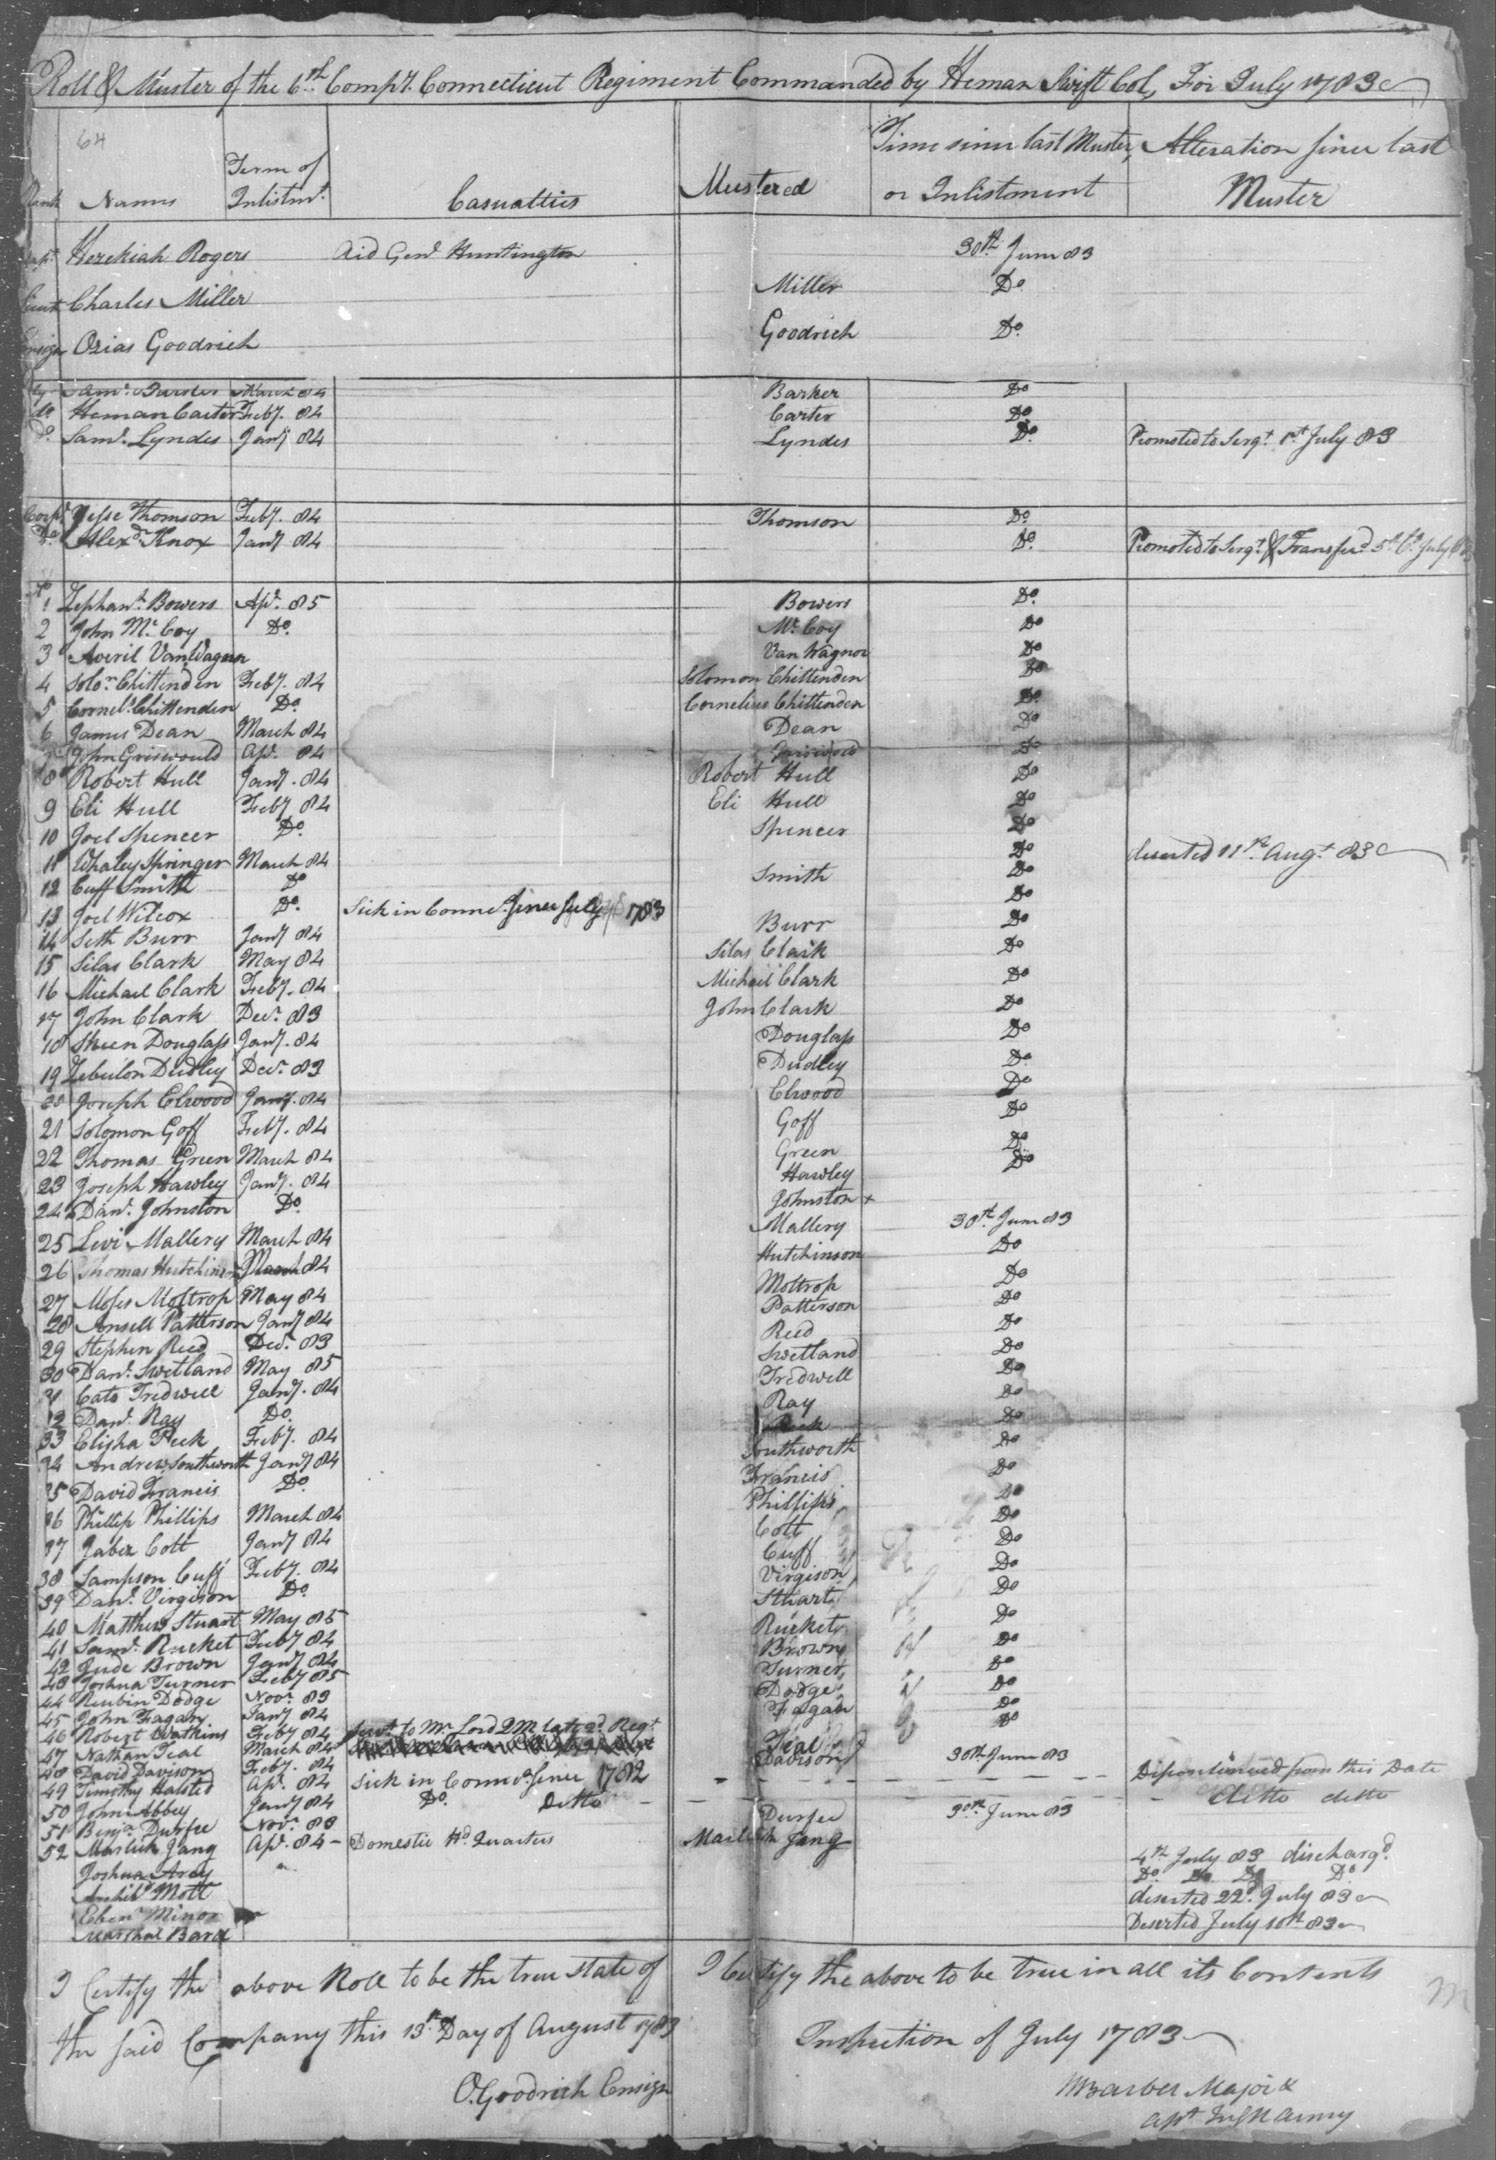 Roll & Muster of the 6th Compy. Connecticut Regiment Commanded by Heman Swift Col, For July 1783
64
Rank Names Term of Inlistmt. Casualties Mustered Time since last Muster, or Inlistment Alteration since last Muster
Capt. Hezekiah Rogers Aid Genl. Huntington 30th June 83
Lieut Charles Miller Miller Do
Ensign Ozias Goodrich Goodrich Do.
Saml. Barker March 84 Barker Do
do Heman Carter Feby. 84 Carter Do.
Do. Saml. Lyndes Jany 84 Lyndes Do. Promoted to Sergt. 1st July 83
Corpl. Jesse Thomson Feby. 84 Thomson Do.
Do Alexd. Knox Jany 84 Do. Promoted to Sergt. & Transferd 5th Co. July
No
1 Zephanh. Bowers Apl. 85 Bowers Do.
2 John Mc. Coy Do. Mc. Coy Do
3 Averil Van Wagnor Van Wagnor Do
4 Solon. Chittenden Feby. 84 Solomon Chittenden Do
5 Cornels. Chittenden Do. Cornelius Chittenden Do.
6 James Dean March 84 Dean Do
7 John Griswould Apl. 84 Griswold Do
8 Robert Hull Jany. 84 Robert Hull Do
9 Eli Hull Feby 84 Eli Hull Do
10 Joel Spencer Do. Spencer Do
11 Whaley Springer March 84 Do deserted 11th Augt. 83
12 Cuff Smith Do Smith Do
13 Joel Wilcox Do. Sick in Connet. since July 1783 Do
14 Seth Burr Jany 84 Burr Do
15 Silas Clark May 84 Silas Clark Do
16 Michael Clark Feby. 84 Michail Clark Do
17 John Clark Decr. 83 John Clark Do
18 Skeen Douglass Jany. 84 Douglass Do
19 Zebulon Dudley Decr. 83 Dudley Do
20 Joseph Elwood Jany. 84 Elwood Do
21 Solomon Goff Feby. 84 Goff Do
22 Thomas Green March 84 Green Do
23 Joseph Hawley Jany. 84 Hawley Do
24 Danl. Johnston Do. Johnston +
25 Levi Mallery March 84 Mallery 30th June 83
26 Thomas Hutchinson March 84 Hutchinson Do
27 Moses Moltrop May 84 Moltrop Do
28 Ansell Patterson Jany 84 Patterson Do
29 Stephen Reed Decr. 83 Reed Do
30 Danl. Swetland May 85 Swetland Do
31 Cato Tredwell Jany. 84 Tredwell Do
32 Danl. Ray Do. Ray Do
33 Elisha Peck Feby. 84 Peck Do
34 Andrew Southworth Jany 84 Southworth Do
35 David Francis Do. Francis Do
36 Phillip Phillips March 84 Phillips Do
37 Jabez Colt Jany 84 Colt Do
38 Sampson Cuff Feby. 84 Cuff Do
39 Danl. Virgison Do. Virgison Do
40 Matthew Stuart May 85 Stuart Do
41 Saml. Rucket Feby 84 Rucket Do
42 Jude Brown Jany 84 Brown Do
43 Joshua Turner Feby 85 Turner Do
44 Reubin Dodge Novr. 83 Dodge Do
45 John Fagan Jany 84 Fagan Do
46 Robert Watkins Feby 84 Servt. to Mr. Lord QM late 2d. Regt Do
47 Nathan Teal March 84 Teal
48 David Davison Feby. 84 Davison 30th June 83
49 Timothy Halsted Apl. 84 Sick in Connet. since 1782 Discontinued from this Date
50 John Abbey Jany 84 Do. Ditto ditto ditto
51 Benja. Durfee Novr. 83 Durfee 30th. June 83
52 Marlick Jang Apl. 84 Domestic Hd. Quarters Marlick Jang
Joshua Arey 4th July 83 dischargd.
Archibd. Mott Do. Do Do Do.
Ebenr. Minor deserted 22d. July 83
Marshal Bard Deserted July 10th 83
I Certify the above Roll to be the true State of
the said Company this 13th. Day of August 1783
O. Goodrich Ensign
I Certify the above to be true in all its Contents
Inspection of July 1783
W Barber Major &
M